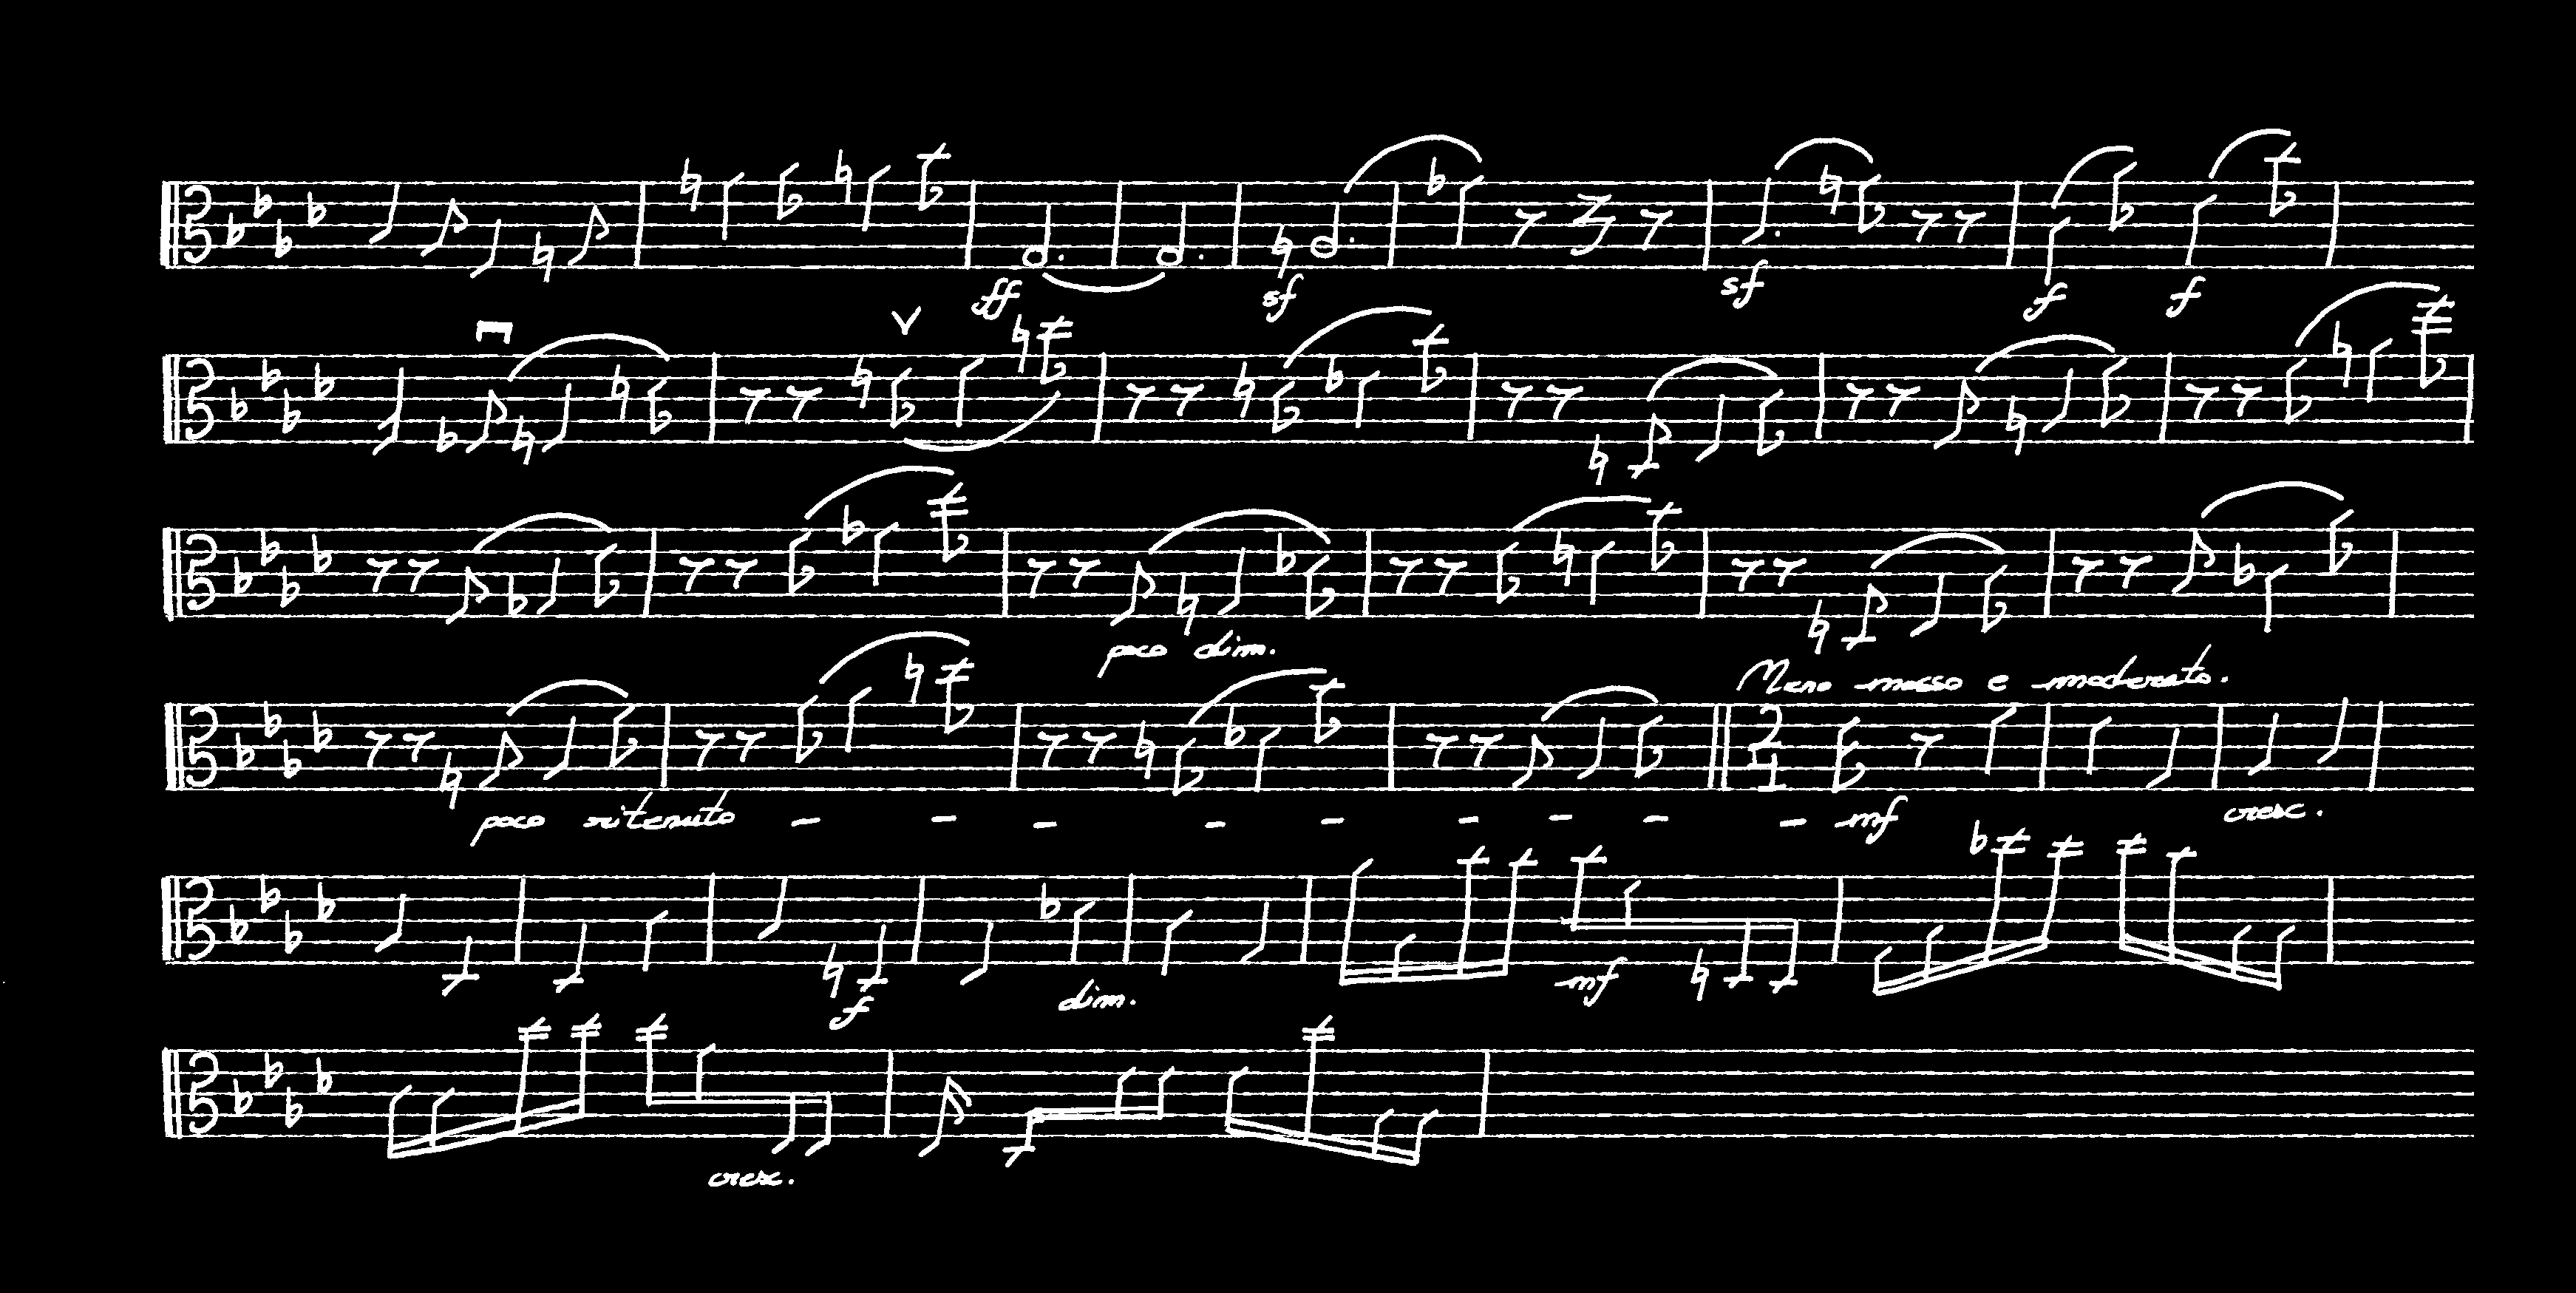 ff sf sf f f
poco dim.
Meno mosso e moderato.
poco ritenuto - - - - - - - - - mf cresc.
2
4
f dim. mf
cresc.